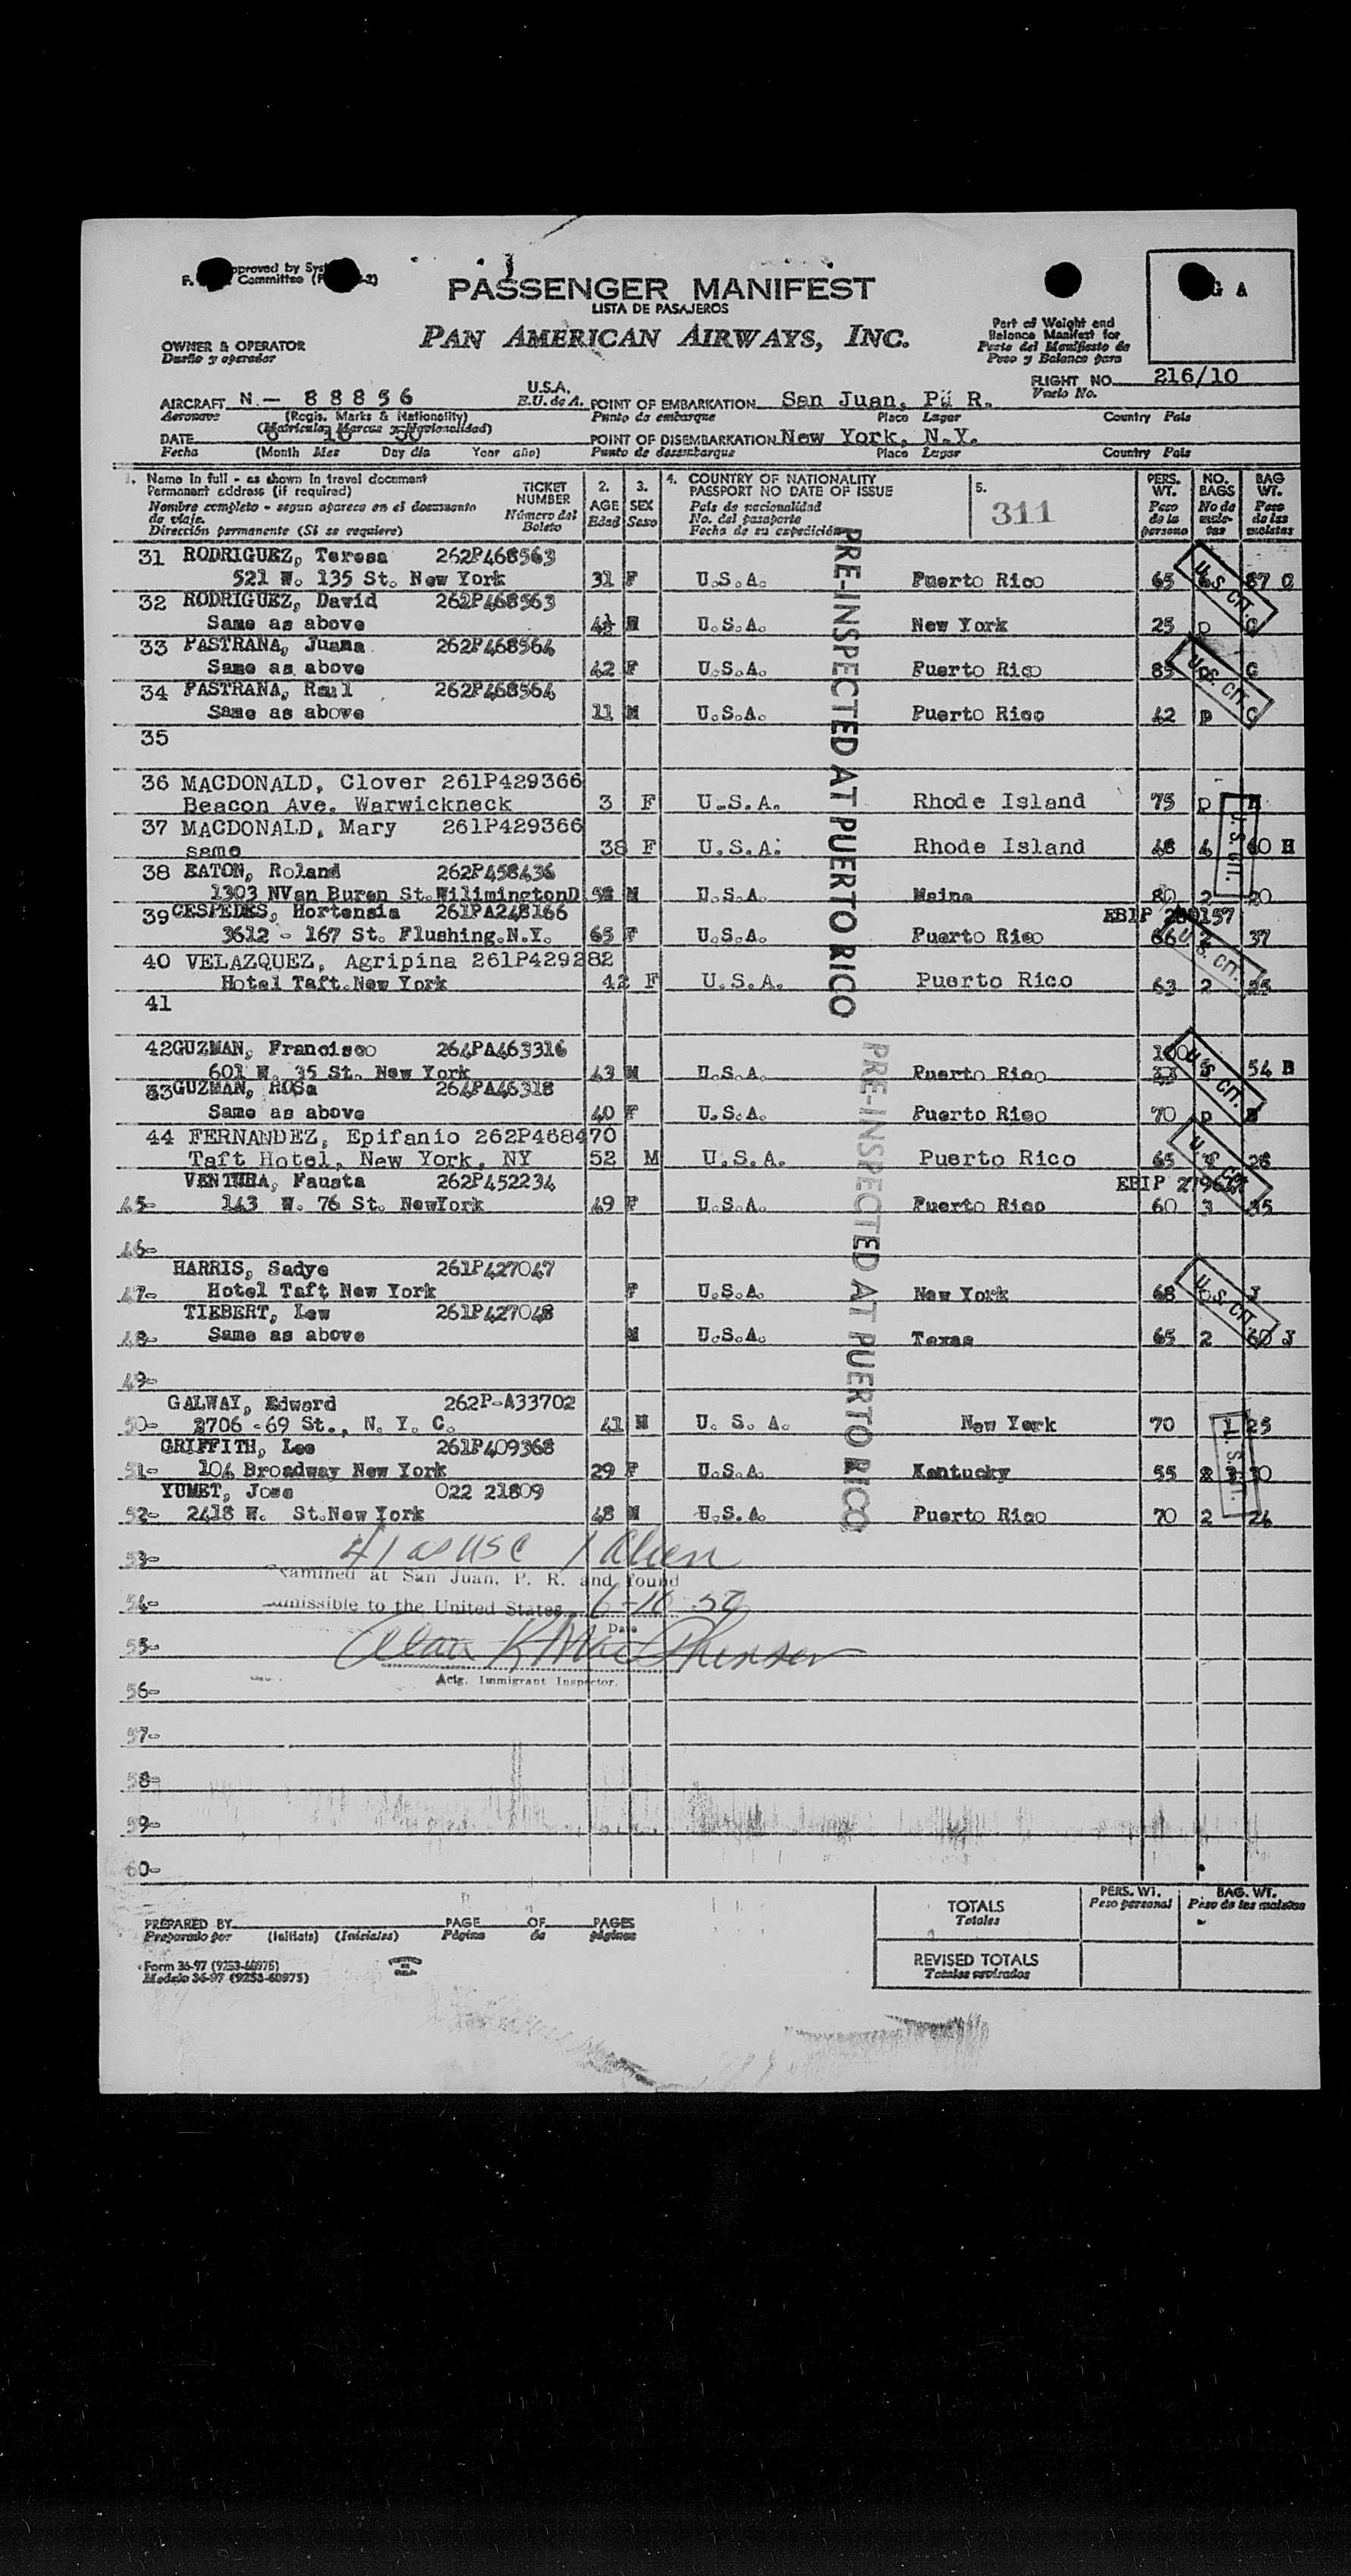 PASSENGER MANIFEST
LISTA DE PASAJEROS
PAN AMERICAN AIRWAYS, INC.
OWNER & OPERATOR
Dueño y operador
Part of Weight and
Balance Manifest for
Parte del Manifiesto de
Peso y Balance para
G A
FLIGHT NO. 216/10
Vuelo No.
AIRCRAFT N.- 88856 U.S.A. E.U. de A. POINT OF EMBARKATION San Juan, P. R.
Aeronave (Regis. Marks & Nationality) Punto de embarque Place Lugar Country País
(Matricula, Marcas y Nacionalidad)
DATE POINT OF DISEMBARKATION New York, N.Y.
Fecha (Month Mes Day día Year año) Punto de desembarque Place Lugar Country País
1. Name in full - as shown in travel document
Permanent address (if required)
Nombre completo - segun aparece en el documento
de viaje.
Dirección permanente (Si se requiere)
TICKET NUMBER Número del Boleto
2. AGE Edad
3. SEX Sexo
4. COUNTRY OF NATIONALITY
PASSPORT NO DATE OF ISSUE
País de nacionalidad
No. del pasaporte
Fecha de su expedición
5. 311
PERS. WT. Peso de la persona
NO. BAGS No de maletas
BAG WT. Peso de las maletas
31 RODRIGUEZ, Teresa 262P468563
521 W. 135 St. New York 31 F U.S.A. Puerto Rico 65 87 C
32 RODRIGUEZ, David 262P468563
Same as above M U.S.A. New York 25 p C
33 PASTRANA, Juana 262P468564
Same as above 42 F U.S.A. Puerto Rico 85 p C
34 PASTRANA, Raul 262P468564
Same as above 11 M U.S.A. Puerto Rico 42 p C
35
36 MACDONALD, Clover 261P429366
Beacon Ave. Warwickneck 3 F U.S.A. Rhode Island 75 p H
37 MACDONALD, Mary 261P429366
same 38 F U.S.A. Rhode Island 48 4 60 H
38 EATON, Roland 262P458436
1303 NVan Buren St.WilimingtonD 58 M U.S.A. Maine 80 2 20
39 CESPEDES, Hortensia 261PA248166 EBIP
3612 - 167 St. Flushing.N.Y. 65 F U.S.A. Puerto Rico 66 2 37
40 VELAZQUEZ, Agripina 261P429282
Hotel Taft.New York 42 F U.S.A. Puerto Rico 63 2 25
41
42 GUZMAN, Francisco 264PA463316
601 W. 35 St. New York 43 M U.S.A. Puerto Rico 54 B
43 GUZMAN, ROSa 264PA46318
Same as above 40 F U.S.A. Puerto Rico 70 p B
44 FERNANDEZ, Epifanio 262P468470
Taft Hotel, New York, NY 52 M U.S.A. Puerto Rico 65 28
VENTURA, Fausta 262P452234 EBIP
45- 143 W. 76 St. NewYork 49 F U.S.A. Puerto Rico 60 3 35
46-
HARRIS, Sadye 261P427047
47- Hotel Taft New York F U.S.A. New York 68 p J
TIEBERT, Lew 261P427048
48- Same as above M U.S.A. Texas 65 2 60 J
49-
GALWAY, Edward 262P-A33702
50- 3706 -69 St., N. Y. C. 41 M U. S. A. New York 70 1 25
GRIFFITH, Lee 261P409368
51- 104 Broadway New York 29 F U.S.A. Kentucky 55 30
YUMET, Jose 022 21809
52- 2418 W. St.New York 48 M U.S.A. Puerto Rico 70 2 24
PRE-INSPECTED AT PUERTO RICO
PRE-INSPECTED AT PUERTO RICO
U.S. CIT.
U.S. CIT.
U.S. CIT.
U.S. CIT.
U.S. CIT.
U.S. CIT.
U.S. CIT.
U.S. CIT.
53- 41 as USC 1 Alien
Examined at San Juan, P. R. and found
54- admissible to the United States 6-10-50
Date
55- Alan K MacPherson
Actg. Immigrant Inspector.
56-
57-
58-
59-
60-
PREPARED BY PAGE OF PAGES
Preparado por (Initials) (Iniciales) Página de páginas
TOTALS
Totales
PERS. WT.
Peso personal
BAG. WT.
Peso de las maletas
REVISED TOTALS
Totales revisados
Form 36-97 (9253-60975)
Modelo 36-97 (9253-60975)